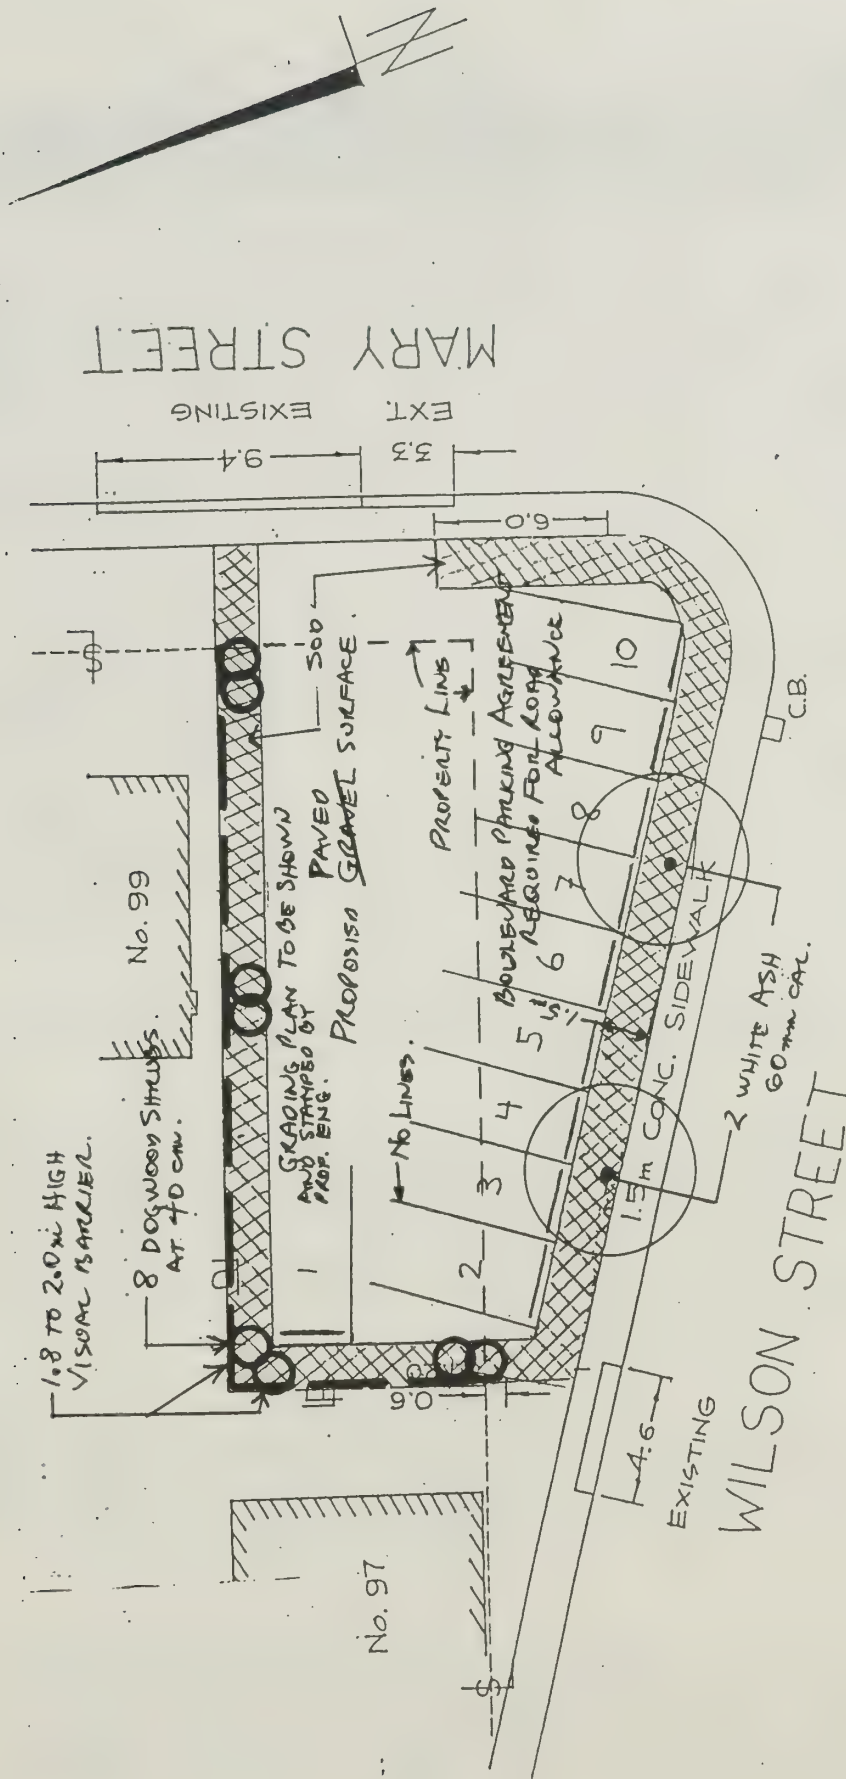 N
MARY STREET
EXISTING
EXT.
9.4
3.3
6.0
1.8 TO 2.0m HIGH
VISUAL BARRIER.
8 DOGWOOD SHRUBS
AT 40 cm.
No. 99
SOD
GRADING PLAN TO BE SHOWN
AND STAMPED BY
PROF. ENG.
PAVED
PROPOSED GRAVEL SURFACE.
PROPERTY LINE
NO LINES.
BOULEVARD PARKING AGREEMENT
REQUIRED FOR ROAD
ALLOWANCE
1
2
3
4
5
6
7
8
9
10
1.5
0.6
C.B.
1.5m CONC. SIDEWALK
2 WHITE ASH
60mm CAL.
4.6
EXISTING
WILSON STREET
No. 97